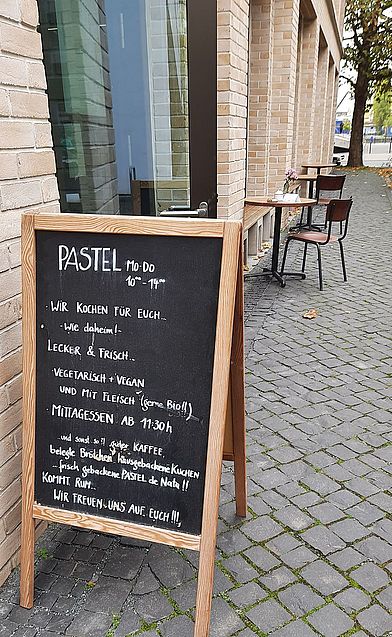 PASTEL MO-DO
10⁰⁰-14⁰⁰
WIR KOCHEN FÜR EUCH...
-Wie daheim!-
LECKER & FRISCH...
VEGETARISCH + VEGAN
UND MIT FLEISCH (gerne Bio!!)
MITTAGESSEN AB 11:30h
...und sonst so?! guter KAFFEE,
belegte Brötchen, hausgebackene KUCHEN
...frisch gebackene PASTEL de Nata!!
KOMMT RUM...
WIR FREUEN UNS AUF EUCH!!!,